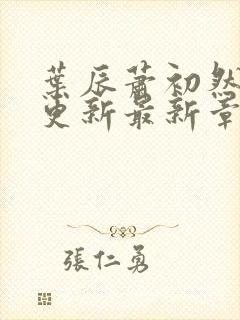 葉辰蕭初然
更新最新章
張仁勇